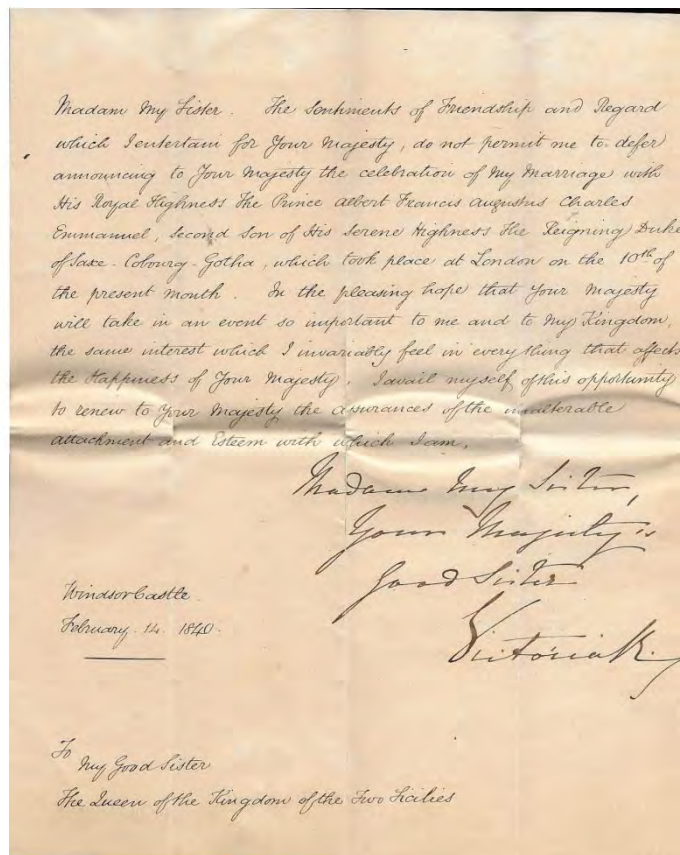 Madam My Sister. The Sentiments of Friendship and Regard
which I entertain for Your Majesty, do not permit me to defer
announcing to Your Majesty the celebration of My Marriage with
His Royal Highness The Prince Albert Francis Augustus Charles
Emmanuel, Second Son of His Serene Highness The Reigning Duke
of Saxe-Cobourg-Gotha, which took place at London on the 10th of
the present Month. In the pleasing hope that Your Majesty
will take in an event so important to me and to My Kingdom,
the same interest which I invariably feel in everything that affects
the Happiness of Your Majesty. I avail myself of this opportunity
to renew to Your Majesty the assurances of the unalterable
attachment and Esteem with which I am,
Madam My Sister,
Your Majesty's
Good Sister
Victoria R.
Windsor Castle.
February. 14. 1840.
To
My Good Sister
The Queen of the Kingdom of the Two Sicilies